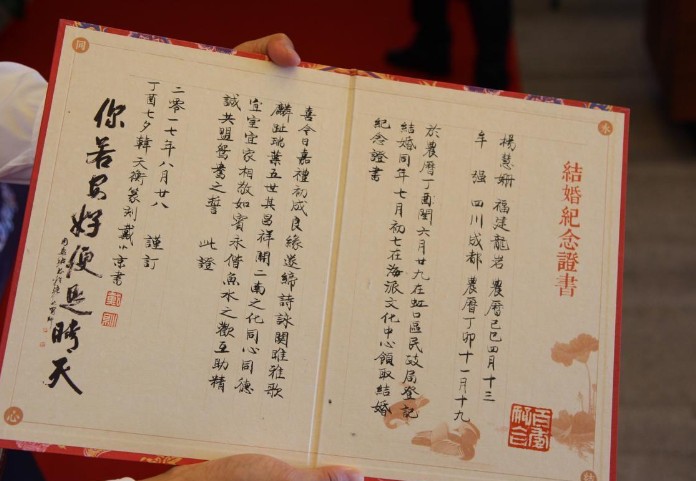 結婚紀念證書
楊慧姍 福建龍岩 農曆己巳四月十三
牟 强 四川成都 農曆丁卯十一月十九
於農曆丁酉閏六月廿九在虹口區民政局登記
結婚同年七月初七在海派文化中心領取結婚
紀念證書
喜今日嘉禮初成良緣遂締詩詠關雎雅歌
麟趾瑞葉五世其昌祥開二南之化同心同德
宜室宜家相敬如賓永偕魚水之歡互助精
誠共盟鴛鴦之誓 此證
二零一七年八月廿八 謹訂
丁酉七夕韓天衡篆刻戴小京書
你若安好便是晴天
同
心
永
百年好合